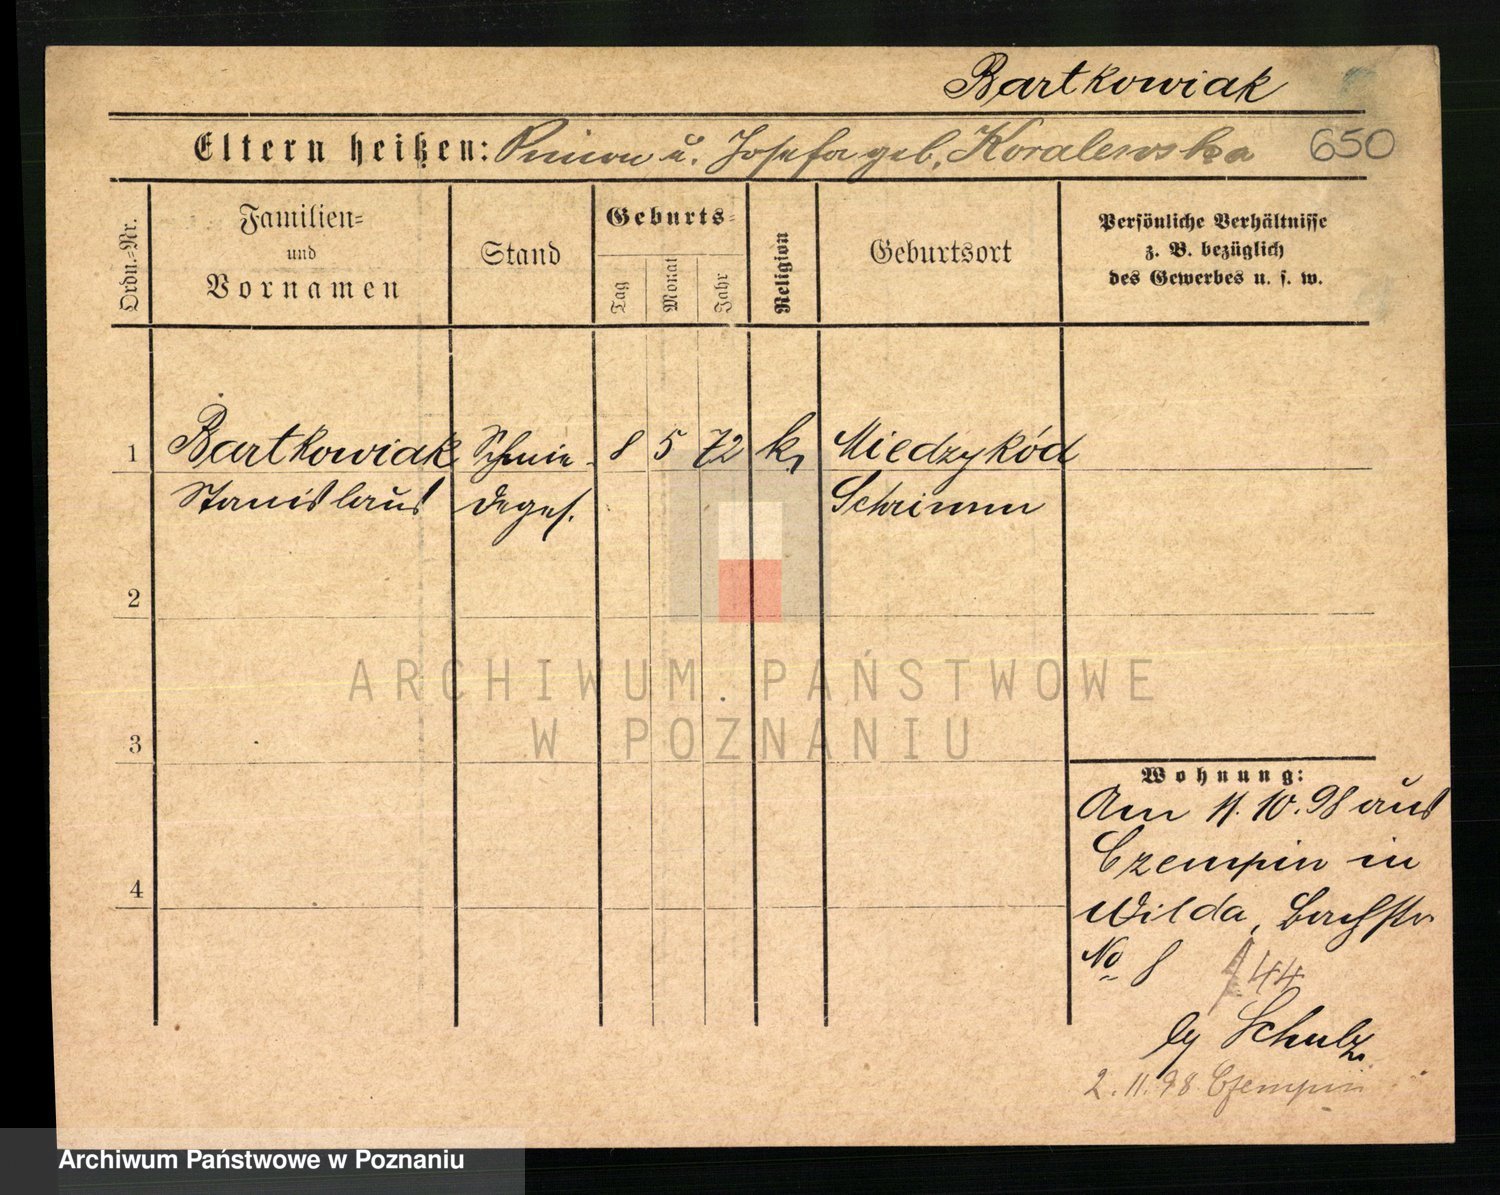 Bartkowiak
Eltern heißen: Simon u. Josefa geb. Koralewska 650
Ordn.-Nr.
Familien-
und
Vornamen
Stand
Geburts-
Tag
Monat
Jahr
Religion
Geburtsort
Persönliche Verhältnisse
z. B. bezüglich
des Gewerbes u. s. w.
1 Bartkowiak Schmie- 8 5 72 k, Miedzykód
Stanislaus deges. Schrimm
2
3
4
Wohnung:
Am 11.10.98 aus
Czempin in
Wilda, Bachstr
No 8 44
by Schulz
2.11.98 Czempin
ARCHIWUM PAŃSTWOWE
W POZNANIU
Archiwum Państwowe w Poznaniu